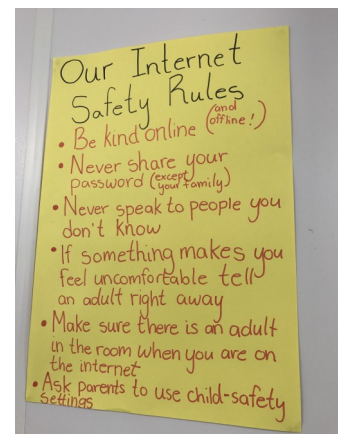 Our Internet
Safety Rules
• Be kind online (and offline!)
• Never share your
password (except your family)
• Never speak to people you
don't know
• If something makes you
feel uncomfortable tell
an adult right away
• Make sure there is an adult
in the room when you are on
the internet
• Ask parents to use child-safety
settings